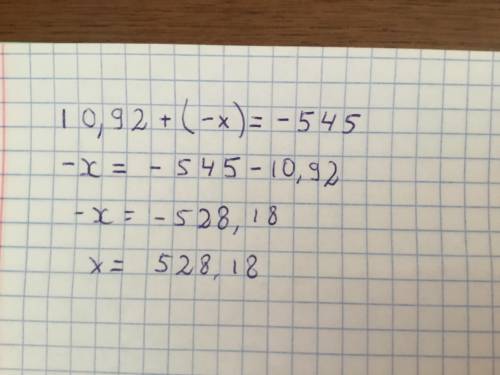 10,92 + (-x) = -545
-x = -545 - 10,92
-x = -528,18
x = 528,18